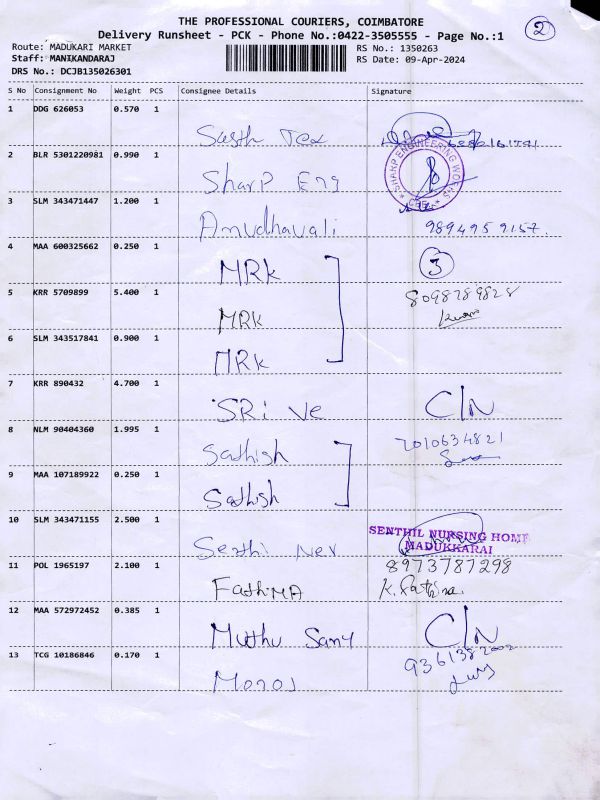 THE PROFESSIONAL COURIERS, COIMBATORE
Delivery Runsheet - PCK - Phone No.:0422-3505555 - Page No.:1
2
Route: MADUKARI MARKET
RS No.: 1350263
Staff: MANIKANDARAJ
RS Date: 09-Apr-2024
DRS No.: DCJB135026301
S No Consignment No Weight PCS Consignee Details Signature
1 DDG 626053 0.570 1
Sasth Tex
2 BLR 5301220981 0.990 1
Sharp Eng
SHARP ENGINEERING WORKS
3 SLM 343471447 1.200 1
Amudhavali 9894959157.
4 MAA 600325662 0.250 1
MRK 3
5 KRR 5709899 5.400 1
8098789828
MRK
6 SLM 343517841 0.900 1
MRK
7 KRR 890432 4.700 1
SRi Ve C/N
8 NLM 90404360 1.995 1
7010634821
Sathish
9 MAA 107189922 0.250 1
Sathish
10 SLM 343471155 2.500 1
SENTHIL NURSING HOME
MADUKKARAI
11 POL 1965197 2.100 1
8973787298
FathiMA K. Fathima
12 MAA 572972452 0.385 1
Muthu Samy C/N
13 TCG 10186846 0.170 1
9361382002
Manoj